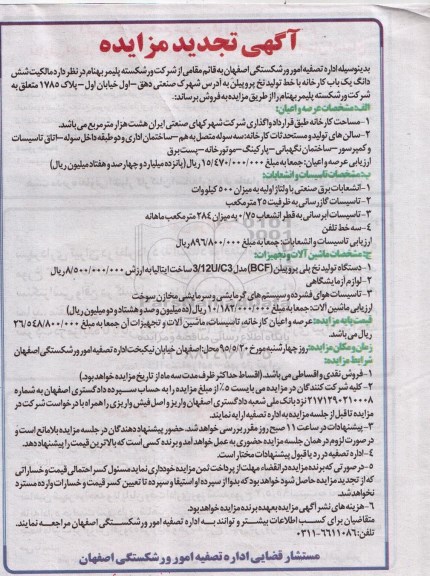 آگهی تجدید مزایده
بدینوسیله اداره تصفیه امور ورشکستگی اصفهان به قائم مقامی از شرکت ورشکسته پلیمر بهنام در نظر دارد مالکیت شش
دانگ یک باب کارخانه با خط تولید نخ پروپیلن به آدرس شهرک صنعتی دهق-اول خیابان اول-پلاک ۱۷۸۵ متعلق به
شرکت ورشکسته پلیمر بهنام را از طریق مزایده به فروش برساند:
الف: مشخصات عرصه و اعیان:
۱-مساحت کارخانه طبق قرارداد واگذاری شرکت شهرکهای صنعتی ایران هشت هزار مترمربع می‌باشد.
۲-سالن های تولید و مستحدثات کارخانه: سه سوله متصل به هم-ساختمان اداری و دو طبقه داخل سوله-اتاق تاسیسات
و کمپرسور-ساختمان نگهبانی-پارکینگ-موتورخانه-پست برق
ارزیابی عرصه و اعیان: جمعا به مبلغ ۱۵/۴۷۰/۰۰۰/۰۰۰ ریال (پانزده میلیارد و چهارصد و هفتاد میلیون ریال)
ب: مشخصات تاسیسات و انشعابات:
۱-انشعابات برق صنعتی با ولتاژ اولیه به میزان ۵۰۰ کیلووات
۲-تاسیسات گازرسانی به ظرفیت ۲۵ مترمکعب
۳-تاسیسات آبرسانی به قطر انشعاب ۰/۷۵ به میزان ۲۸۴ مترمکعب ماهانه
۴-سه خط تلفن
ارزیابی تاسیسات و انشعابات: جمعا به مبلغ ۸۹۶/۸۰۰/۰۰۰ ریال
ج: مشخصات ماشین آلات و تجهیزات:
۱-دستگاه تولید نخ پلی پروپیلن (BCF) مدل 3/12U/C3 ساخت ایتالیا به ارزش ۸/۵۰۰/۰۰۰/۰۰۰ ریال
۲-لوازم آزمایشگاهی
۳-تاسیسات هوای فشرده و سیستم های گرمایشی و سرمایشی مخازن سوخت
ارزیابی ماشین آلات: جمعا به مبلغ ۱۰/۱۸۲/۰۰۰/۰۰۰ ریال (ده میلیون و صد و هشتاد و دو میلیون ریال)
قیمت پایه مزایده: عرصه و اعیان کارخانه، تاسیسات، ماشین آلات و تجهیزات آن جمعا به مبلغ ۲۶/۵۴۸/۸۰۰/۰۰۰
ریال می باشد.
زمان و مکان مزایده: روز چهارشنبه مورخ ۹۵/۵/۲۰ محل: اصفهان خیابان نیکبخت اداره تصفیه امور ورشکستگی اصفهان
شرایط مزایده:
۱-فروش نقدی و اقساطی می باشد. (اقساط حداکثر ظرف مدت سه ماه از تاریخ مزایده خواهد بود)
۲-کلیه شرکت کنندگان در مزایده می بایست ۵٪ از مبلغ مزایده را به حساب سپرده دادگستری اصفهان به شماره
۲۱۷۱۲۹۰۲۱۰۰۰۸ نزد بانک ملی شعبه دادگستری اصفهان واریز و اصل فیش واریزی را همراه با درخواست شرکت در
مزایده تا قبل از جلسه مزایده به اداره تصفیه ارایه نمایند.
۳-پیشنهادات در ساعت ۱۱ صبح روز مقرر بررسی خواهد شد. حضور پیشنهاد دهندگان در جلسه مزایده بلامانع است و
در صورت لزوم در همان جلسه مزایده حضوری به عمل خواهد آمد و برنده کسی است که بالاترین قیمت را پیشنهاد دهد.
۴-اداره تصفیه در رد یا قبول پیشنهادات مختار است.
۵-در صورتی که برنده مزایده در انقضاء مهلت از پرداخت ثمن مزایده خودداری نماید مسئول کسر احتمالی قیمت و خساراتی
که از تجدید مزایده حاصل شود خواهد بود که بدوا از سپرده او استیفا و سپرده تا تعیین کسر قیمت و خسارات وارده مسترد
نخواهد شد.
۶-هزینه های نشر آگهی مزایده به عهده برنده مزایده خواهد بود.
متقاضیان برای کسب اطلاعات بیشتر و توانند به اداره تصفیه امور ورشکستگی اصفهان مراجعه نمایند.
تلفن: ۰۳۱۱-۶۶۱۱۰۸۶
مستشار قضایی اداره تصفیه امور ورشکستگی اصفهان